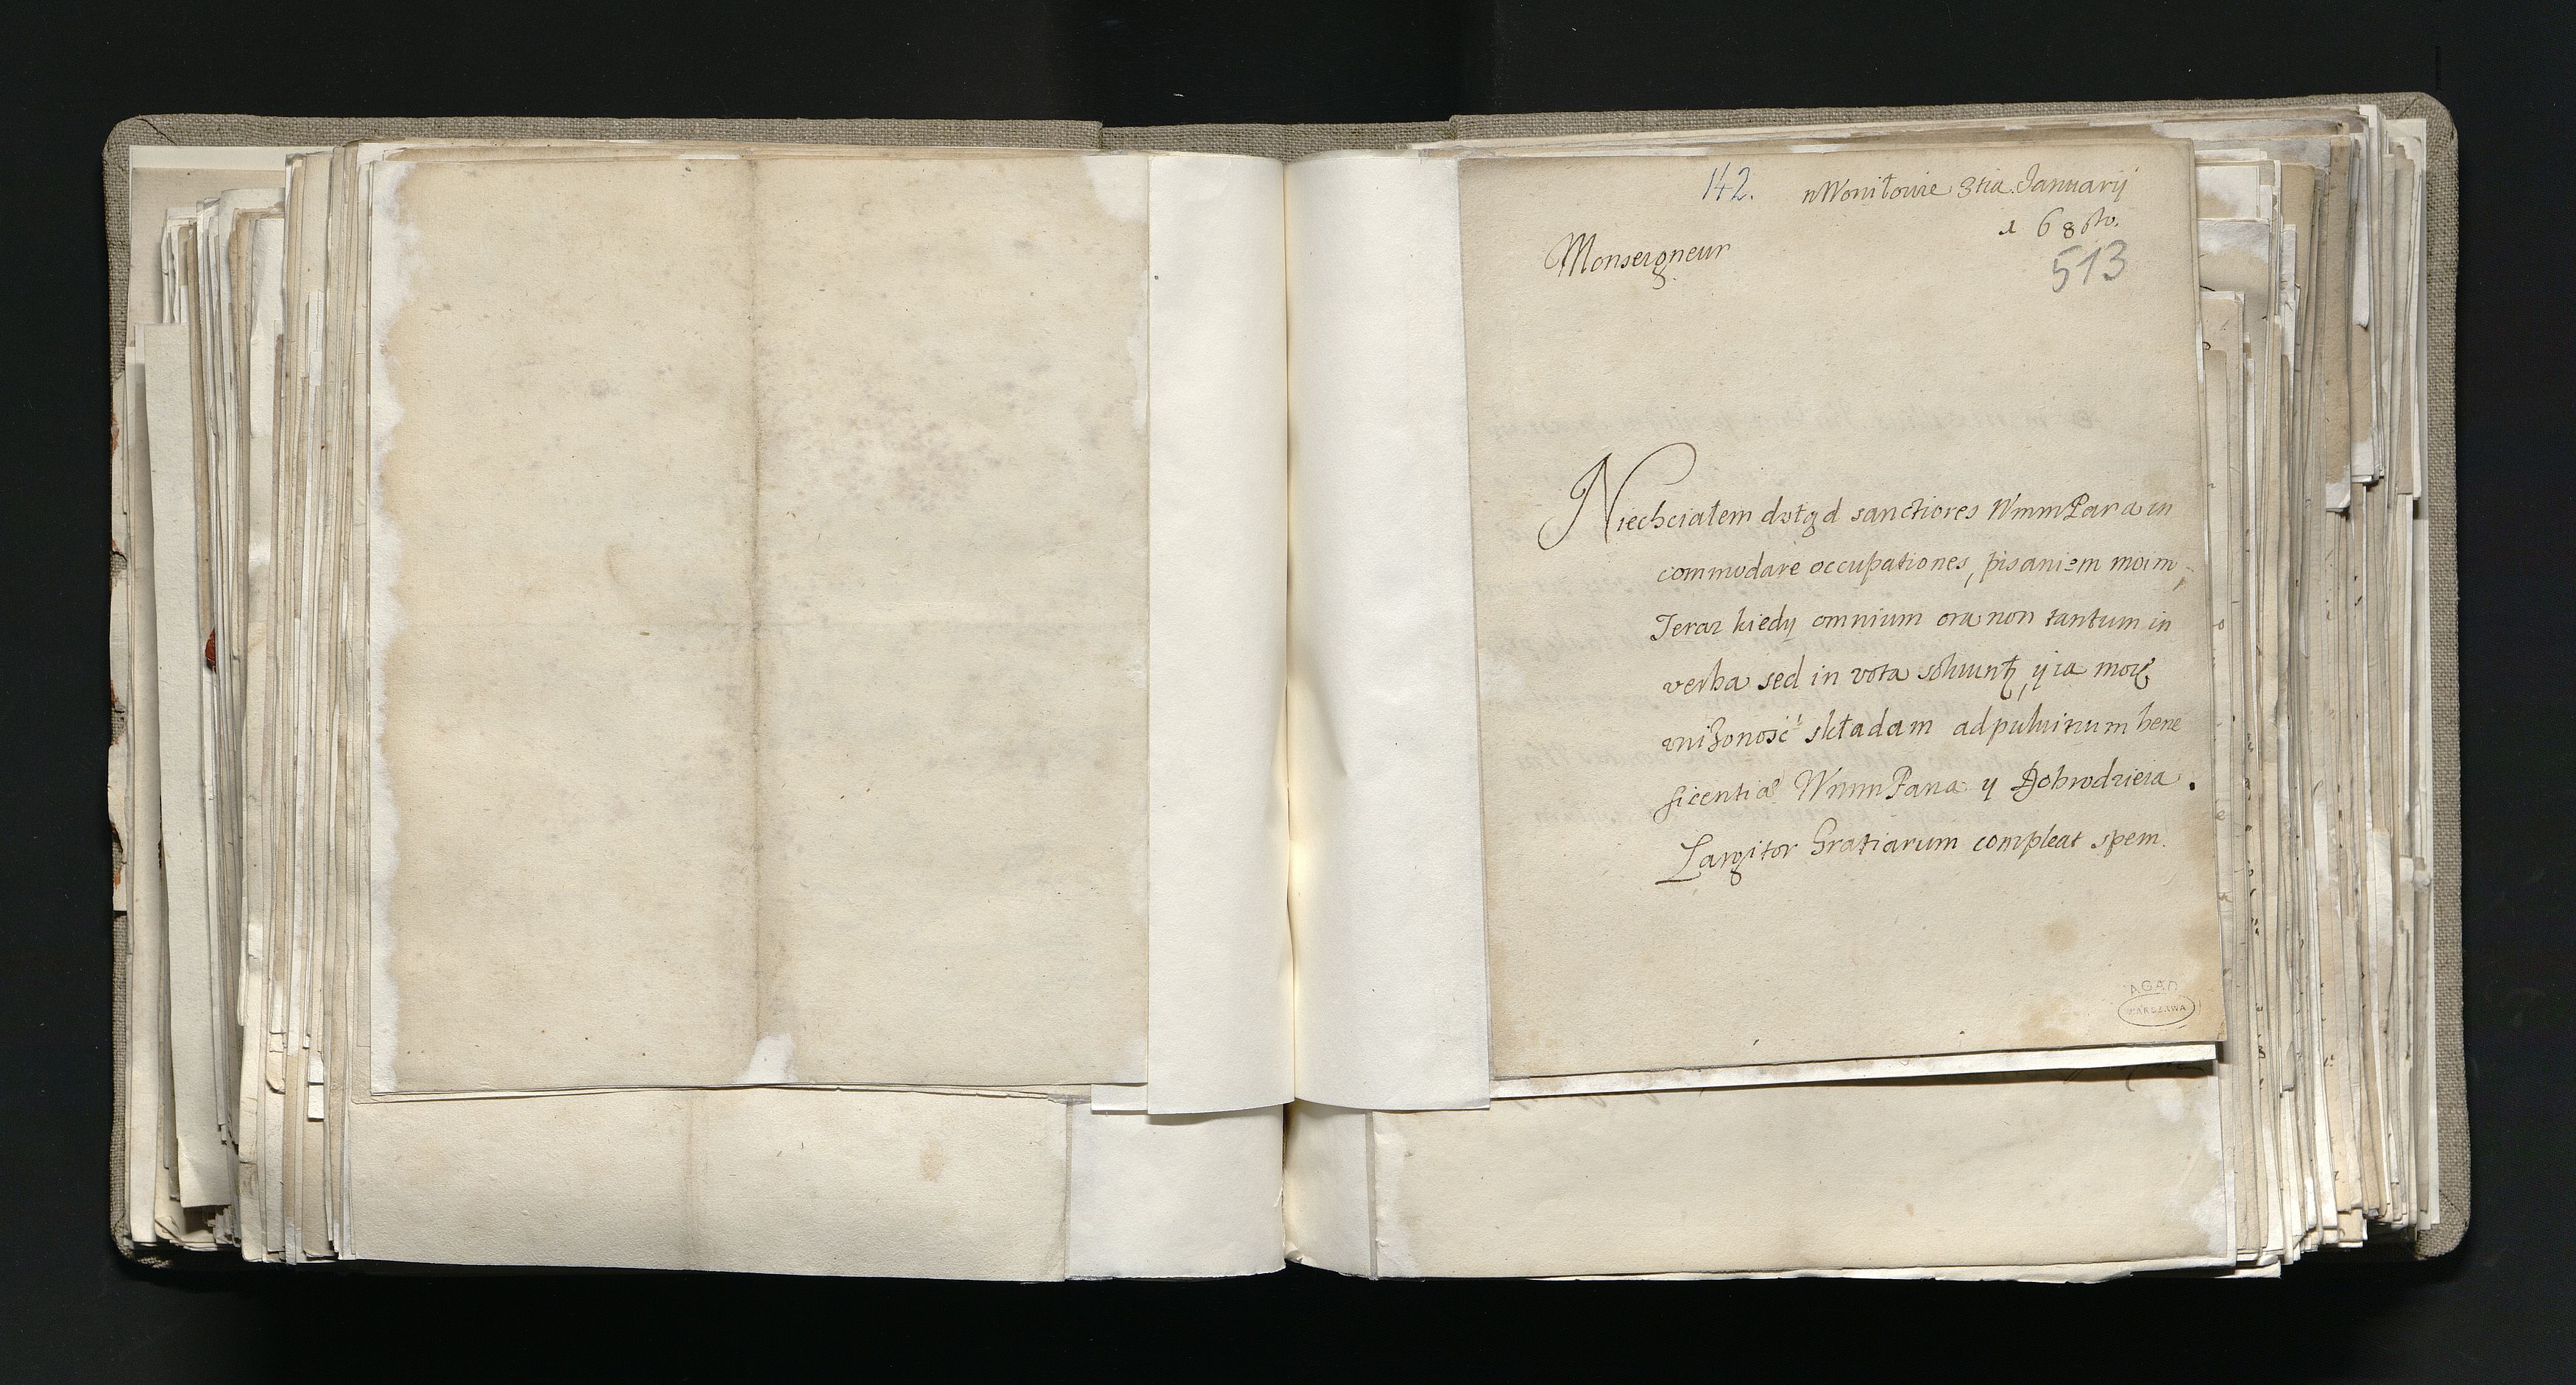 142. w Woniłowie 3tia Januarij
1686to.
513
Monseigneur
Niechciałem dotąd sanctiores WmmPana in
commodare occupationes, pisaniem moim,
Teraz kiedy omnium ora non tantum in
verba sed in vota soluuntr, y ia moię
vniżoność składam ad puluinum bene
ficentiæ WmmPana y Dobrodzieia.
Largitor Gratiarum compleat spem.
AGAD
WARSZAWA